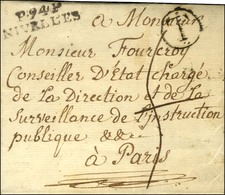 P.94.P
NIVELLES
à Monsieur
Monsieur Fourcroy
Conseiller D'État chargé
de La Direction et de La
Surveillance de L'instruction
publique &&
à Paris